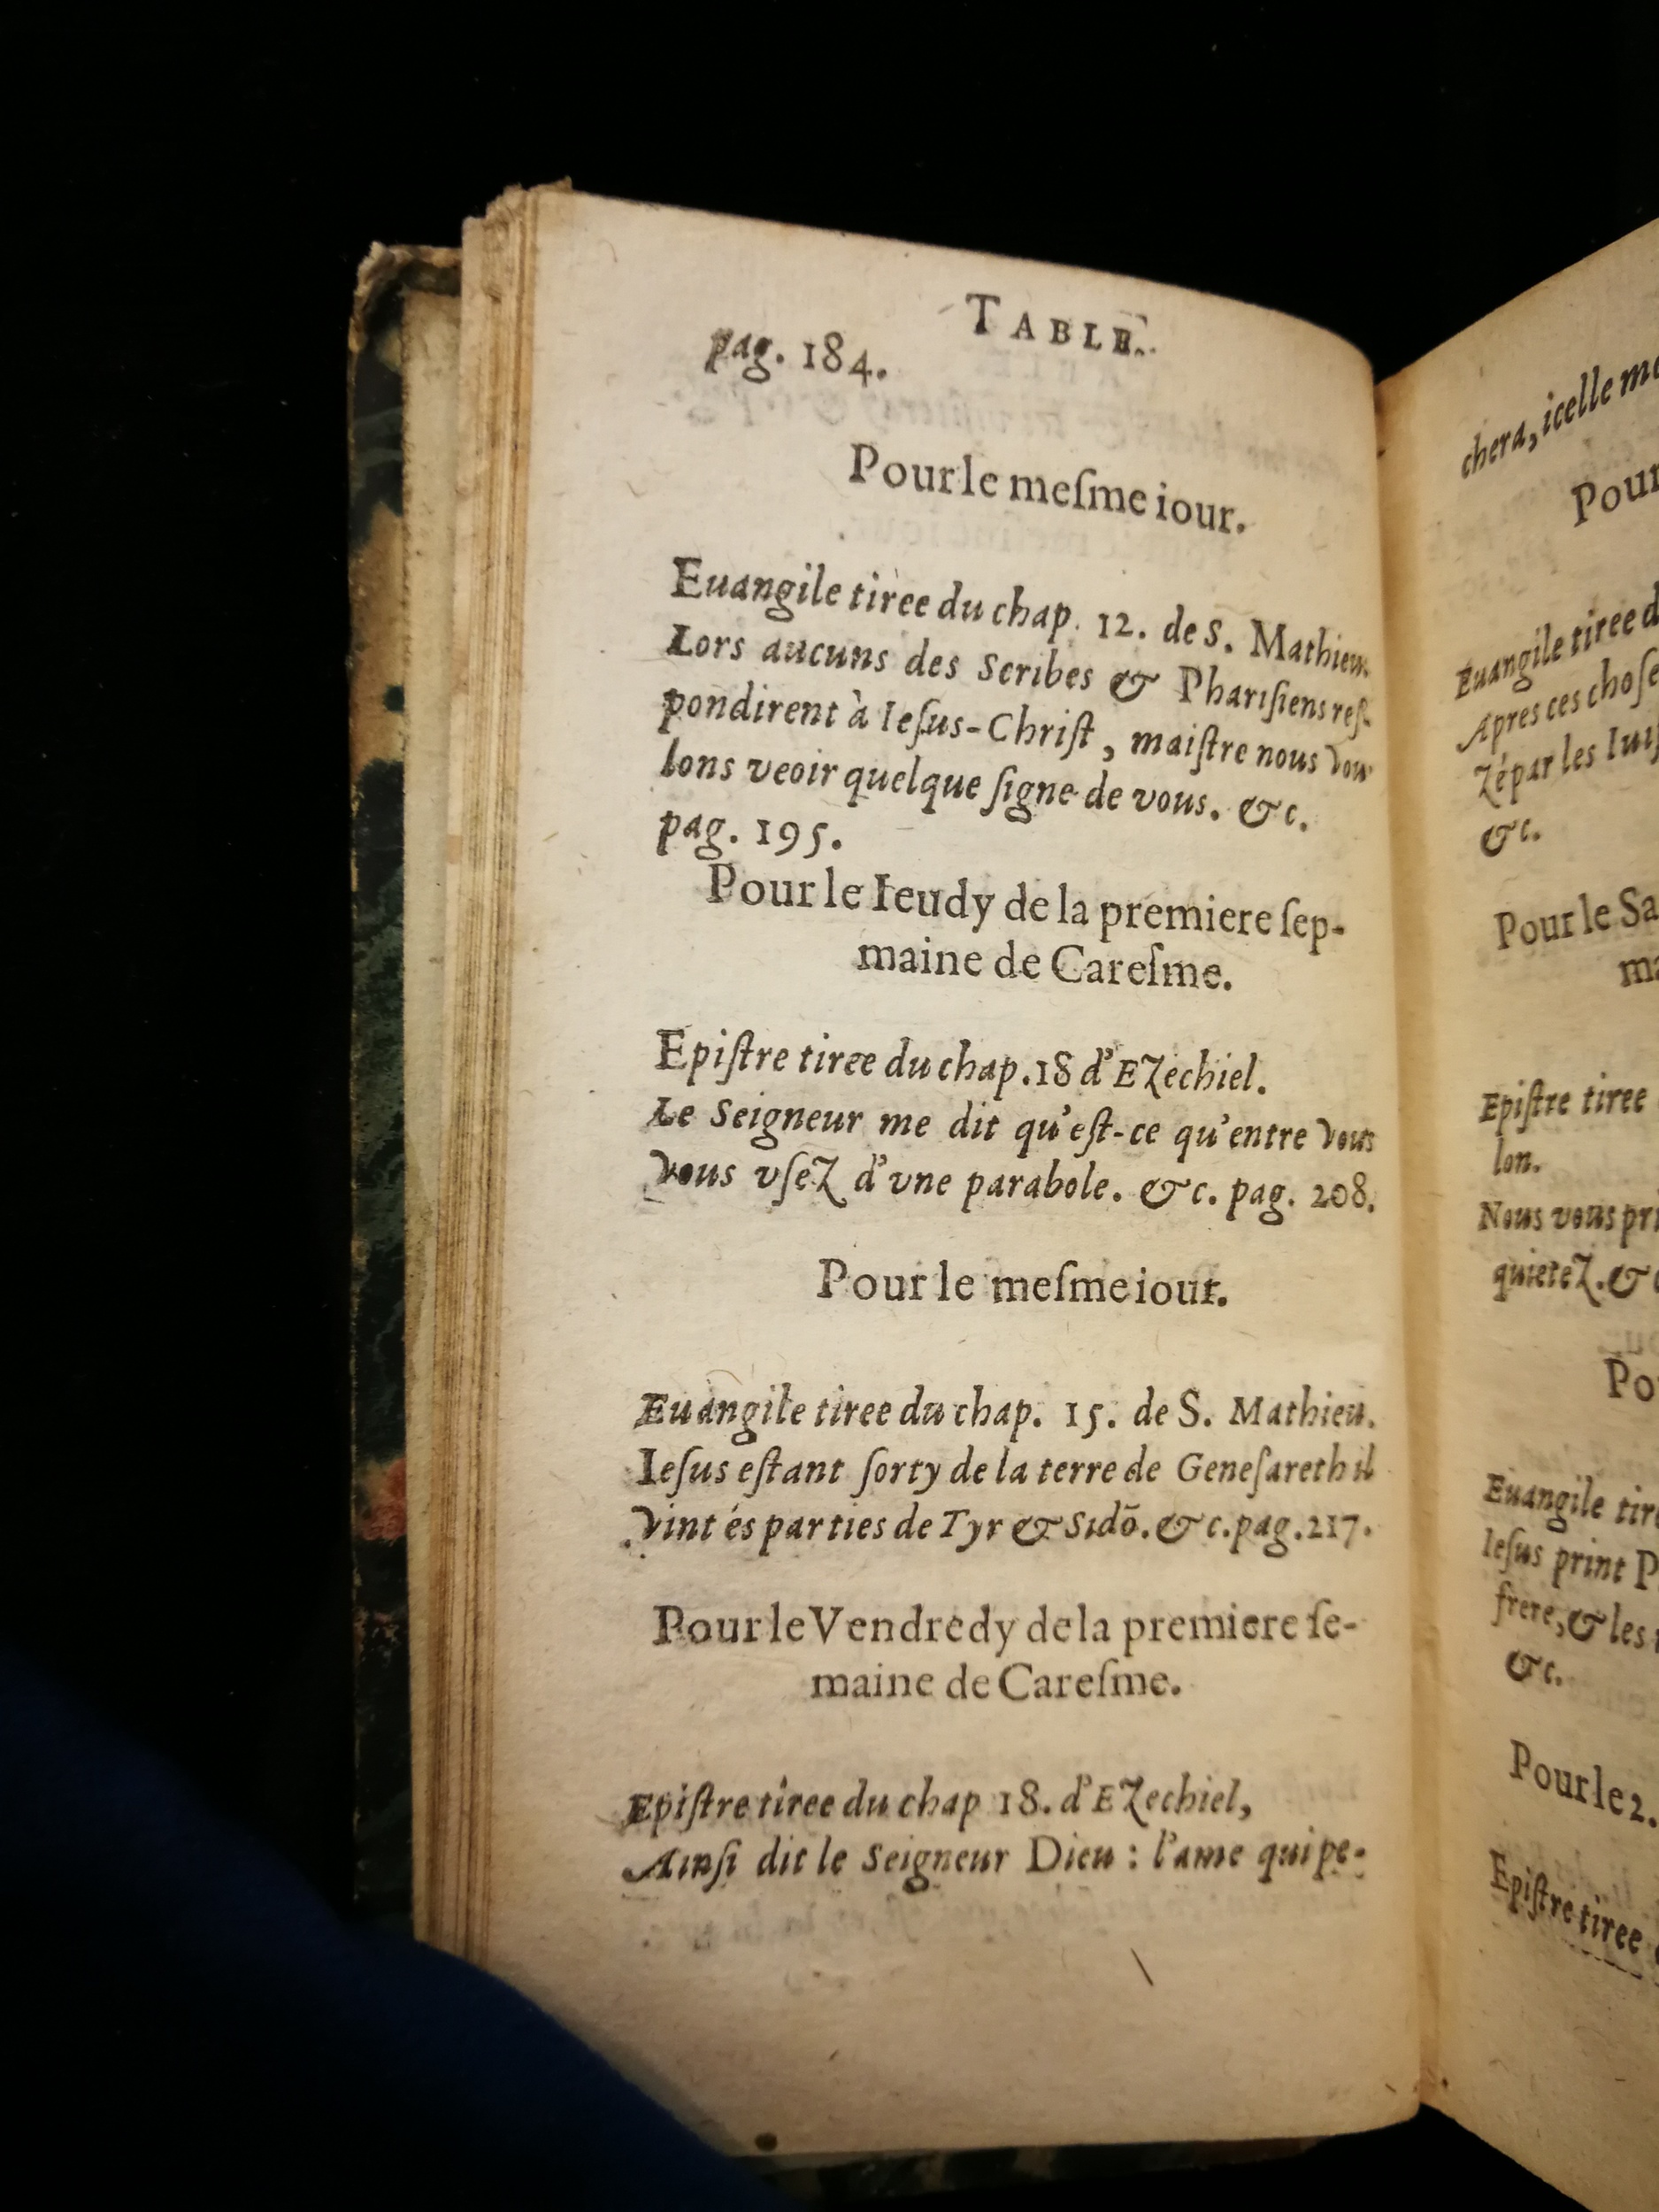 TABLE.
pag. 184.
Pour le meſme iour.
Euangile tiree du chap. 12. de S. Mathieu.
Lors aucuns des Scribes & Phariſiens reſ-
pondirent à Ieſus-Chriſt, maiſtre nous vou-
lons veoir quelque ſigne de vous. &c.
pag. 195.
Pour le Ieudy de la premiere ſep-
maine de Careſme.
Epiſtre tiree du chap. 18 d'Ezechiel.
Le Seigneur me dit qu'eſt-ce qu'entre vous
vous vſez d'vne parabole. &c. pag. 208.
Pour le meſme iour.
Euangile tiree du chap. 15. de S. Mathieu.
Ieſus eſtant ſorty de la terre de Geneſareth il
vint és parties de Tyr & Sidō. &c. pag. 217.
Pour le Vendredy de la premiere ſe-
maine de Careſme.
Epiſtre tiree du chap 18. d'Ezechiel,
Ainſi dit le Seigneur Dieu : l'ame qui pe-
chera, icelle
Pour
Euangile tiree
Apres ces
zé par les
&c.
Pour le
Epiſtre tiree
lon.
Nous vous
quietez. &
Euangile
Ieſus print
frere, & les
&c.
Pour le 2.
Epiſtre tiree